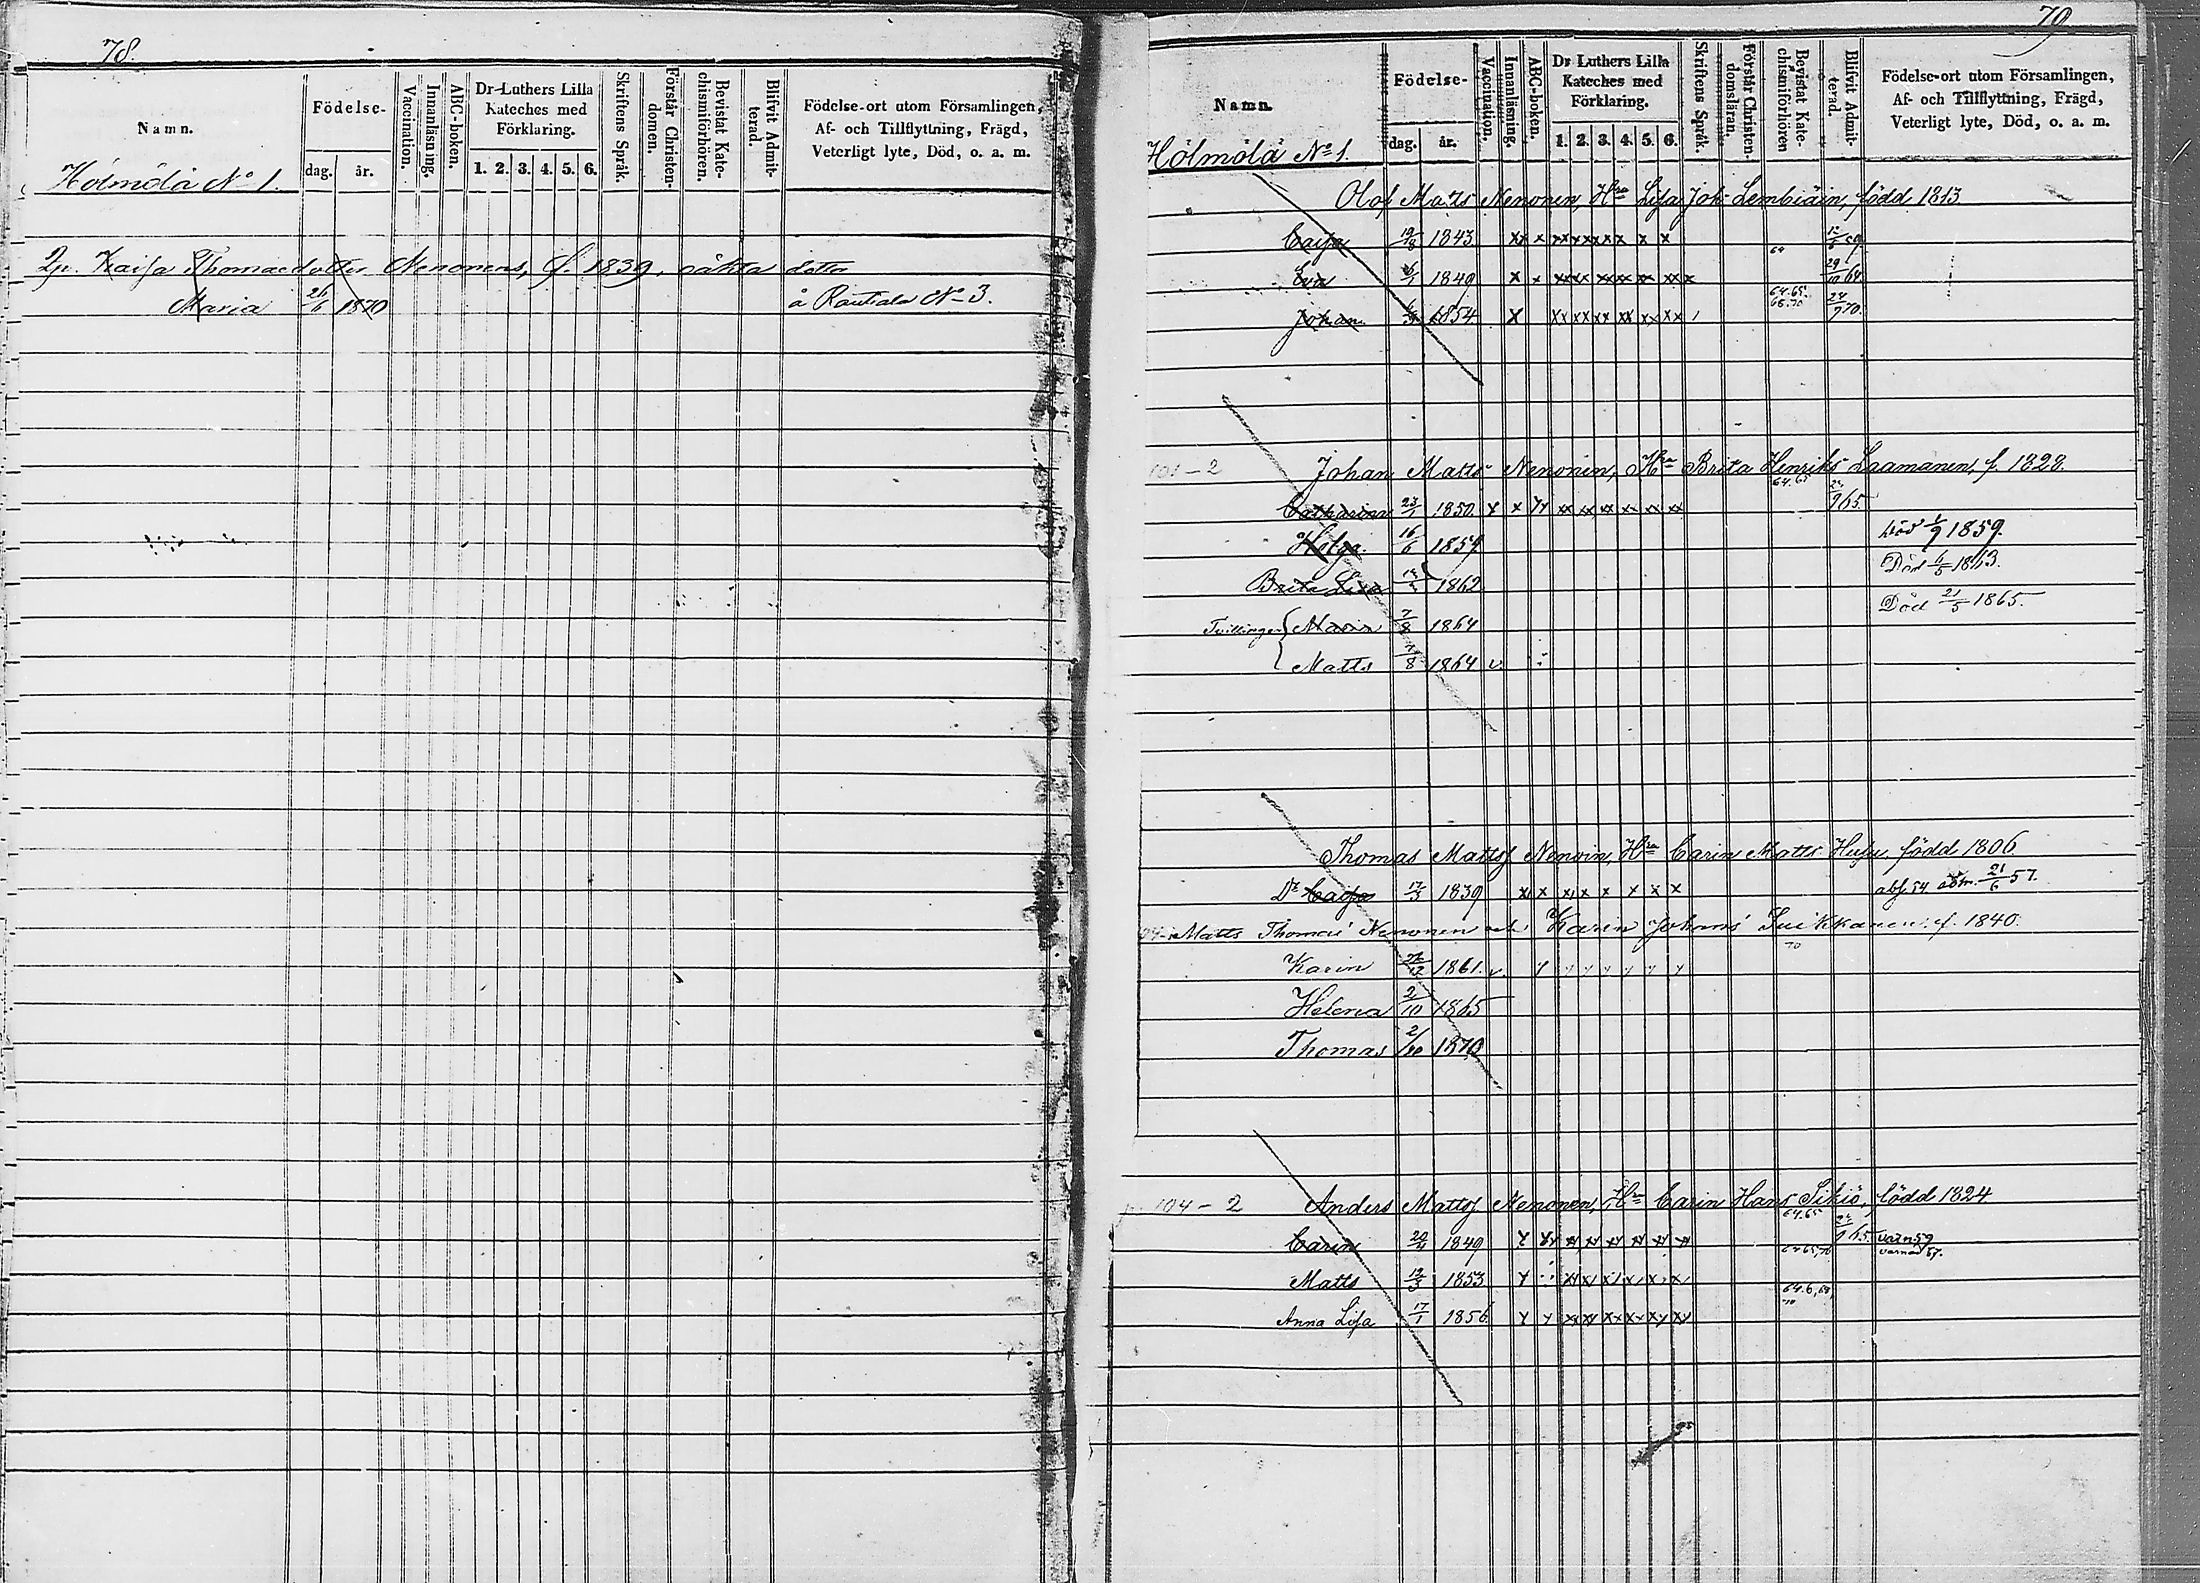 78.
Namn.
Födelse-
dag. år.
Vaccination.
Innanläsning.
ABC-boken.
Dr Luthers Lilla
Kateches med
Förklaring.
1. 2. 3. 4. 5. 6.
Skriftens Språk.
Förstår Christen-
domen.
Bevistat Kate-
chismiförhören.
Blifvit Admit-
terad.
Födelse-ort utom Församlingen,
Af- och Tillflyttning, Frägd,
Veterligt lyte, Död, o. a. m.
Hölmölä No 1.
Kaisa Thomaedotter Nenonens, f. 1839, oäkta dotter
Maria 26/6 1870 å Rautiala No 3.
79
Namn.
Födelse-
dag. år.
Vaccination.
Innanläsning.
ABC-boken.
Dr Luthers Lilla
Kateches med
Förklaring.
1. 2. 3. 4. 5. 6.
Skriftens Språk.
Förstår Christen-
domsläran.
Bevistat Kate-
chismiförhören
Blifvit Admit-
terad.
Födelse-ort utom Församlingen,
Af- och Tillflyttning, Frägd,
Veterligt lyte, Död, o. a. m.
Hölmölä No 1.
Olof Matts Nenonen, Hru Lisa Joh Lembiäin, född 1813.
Caisa 19/8 1843 x x x
Eva 1849 x x 29/10 64.
Johan 1854 x 64.65. 68.70 24/9 70.
101-2 Johan Matts Nenonen, Hru Brita Henriks Laamanen, f. 1828.
Catharina 23/1 1850 64.65 24/9 65.
Helga 16/6 1859 Död 1/9 1859.
Brita Lisa 1862 Död 1863.
Tvillingar Maria 7/8 1864 Död 21/5 1865.
Matts 7/8 1864 v.
Thomas Matts Nenoin, Hru Carin Matts Husu, född 1806
Dr Caisa 17/3 1839 x x x x x x x x abs. 54. adm. 21/6 57.
Matts Thomas Nenonen och Karin Johans Suikkanen f. 1840.
Karin 26/12 1861. v. 70
Helena 2/10 1865
Thomas 2/10 1870
104-2 Anders Matts Nenonen, Hru Carin Hans Sikiö, född 1824
Carin 20/4 1849 64.65 24/9 65. varn 59
varnad 57.
Matts 12/3 1853
Anna Lisa 17/1 1856